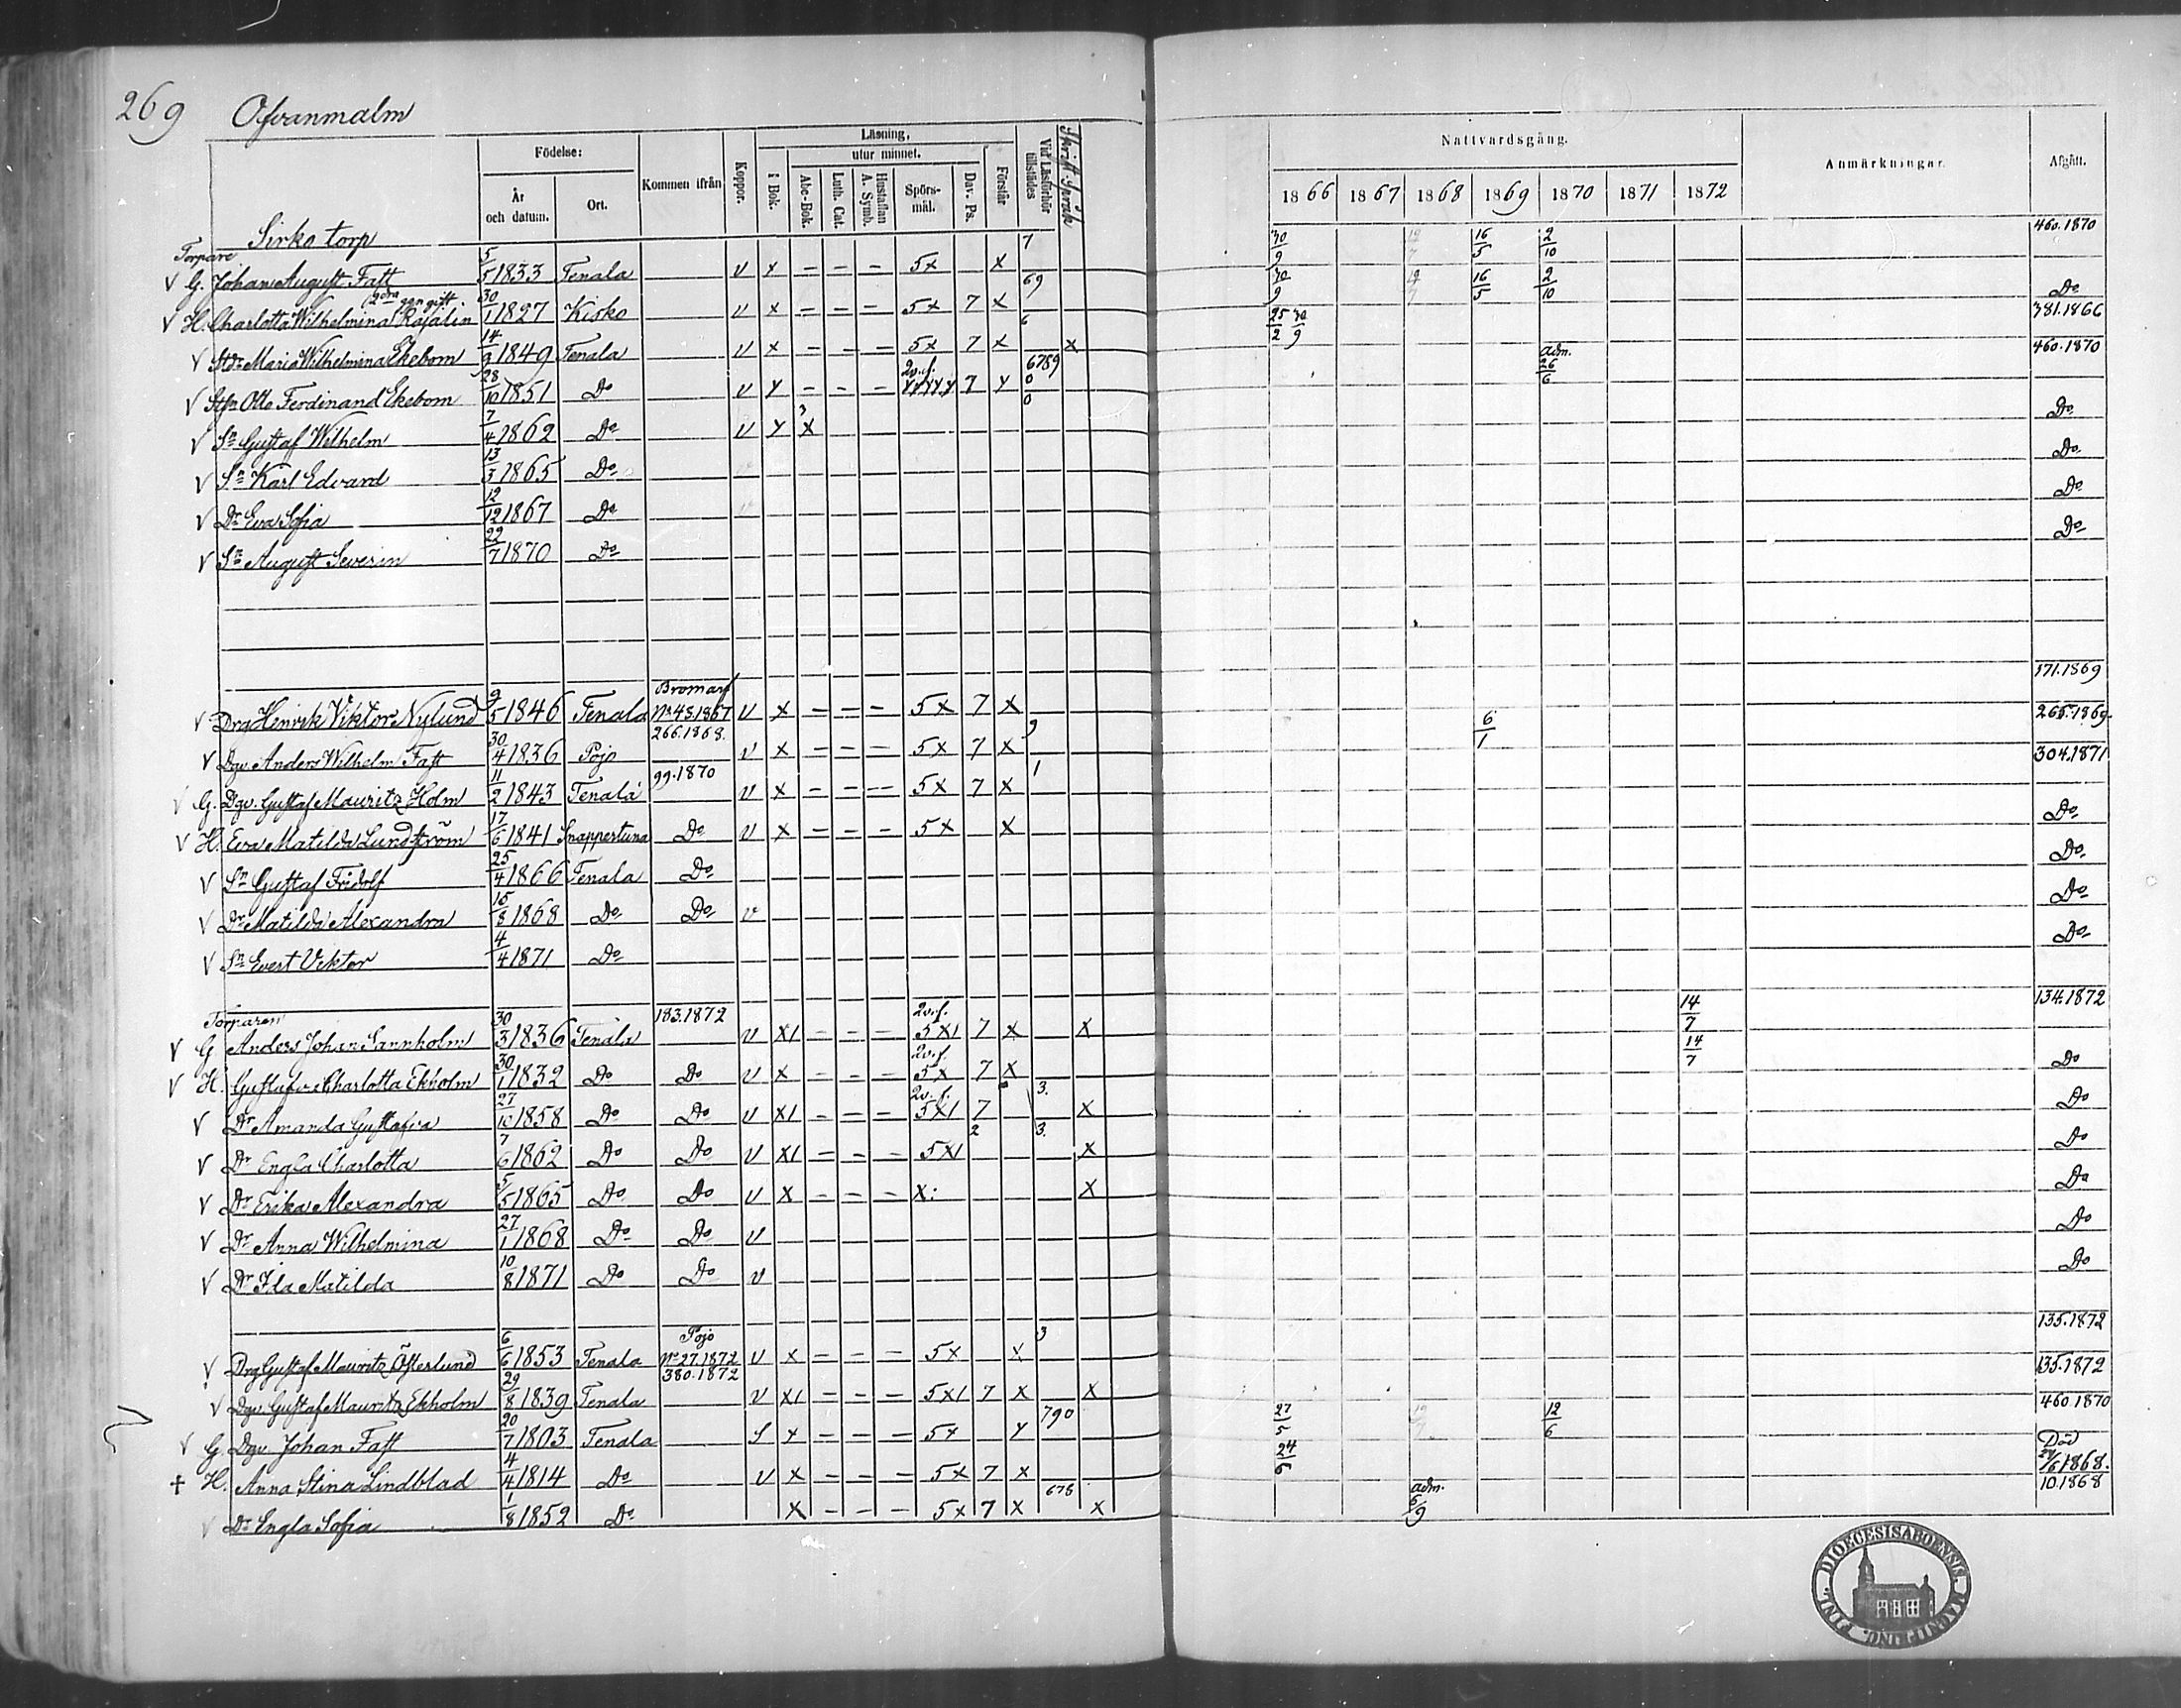 269 Ofvanmalm
Födelse: År och datum. Ort. Kommen ifrån Koppor. Läsning, i Bok. utur minnet. Abc-Bok. Luth. Cat. Hustaflan A. Symb. Spörsmål. Dav. Ps. Förstår Vid Läsförhör tillstädes Skrift. Språk Nattvardsgång. 1866 1867 1868 1869 1870 1871 1872 Anmärkningar. Afgått.
Sirko torp
Torpare
V G. Johan August Fast 5/5 1833 Tenala v x – – – 5x x 7 30/9 12/7 16/5 2/10 460.1870
(2dra ggn gift
V H. Charlotta Wilhelmina Rosalin 30/1 1827 Kisko v x – – – 5x 7 x 69 30/9 12/7 16/5 2/10 Do
V Stdr Maria Wilhelmina Ekebom 14/9 1849 Tenala v x – – – 5x 7 x 6 x 25/2 30/9 381.1866
V Stsn Otto Ferdinand Ekebom 28/10 1851 Do v x – – – 2v.f. xxxxx 7 x 6789 0 adm. 26/6 460.1870
V Sn Gustaf Wilhelm 7/4 1862 Do v x 3 x 0 Do
V Sn Karl Edvard 13/3 1865 Do Do
V Dr Eva Sofia 12/12 1867 Do Do
V Sn August Severin 22/7 1870 Do Do
V Drg Henrik Viktor Nylund 9/5 1846 Tenala Bromarf No 48.1867 v x – – – 5x 7 x 171.1869
V Dgv. Anders Wilhelm Fast 30/4 1836 Pojo 266.1868. v x – – – 5x 7 x 9 6/1 265.1869.
V G. Dgv. Gustaf Mauritz Holm 11/2 1843 Tenala 99.1870 v x – – – 5x 7 x 1 304.1871
V H. Eva Matilda Lundström 17/6 1841 Snappertuna Do v x – – – 5x x Do
V Sn Gustaf Fridolf 25/4 1866 Tenala Do Do
V Dr Matilda Alexandra 15/8 1868 Do Do v Do
V Sn Evert Viktor 4/4 1871 Do Do
Torparen
V G Anders Johan Sannholm 30/3 1836 Tenala 183.1872 v x1 – – – 2v.f. 5x1 7 x x 14/7 134.1872
V H. Gustafva Charlotta Ekholm 30/1 1832 Do Do v x – – – 2v.f. 5x 7 x 14/7 Do
V Dr Amanda Gustafva 27/10 1858 Do Do v x1 – – – 2v.f. 5x1 7 3. x Do
V Dr Engla Charlotta 7/6 1862 Do Do v x1 – – – 5x1 2 3. x Do
V Dr Erika Alexandra 5/5 1865 Do Do v x – – – x: x Do
V Dr Anna Wilhelmina 27/1 1868 Do Do v Do
V Dr Ida Matilda 10/8 1871 Do Do v Do
V Drg Gustaf Mauritz Österlund 6/6 1853 Tenala Pojo No 27.1872 v x – – – 5x x 3 135.1872
V Dgv Gustaf Mauritz Ekholm 29/8 1839 Tenala 380.1872 v x1 – – – 5x1 7 x x 135.1872
V G Dgv Johan Fast 20/7 1803 Tenala S x – – – 5x x 790 27/5 12/7 12/6 460.1870
† H. Anna Stina Lindblad 4/4 1814 Do v x – – – 5x 7 x 24/6 Död 24/6 1868.
V Dr Engla Sofia 1/8 1852 Do x – – – 5x 7 x 678 x adm. 6/9 10.1868
DIOECESIS ABOENSIS. MAGNI PRINC. FINL.